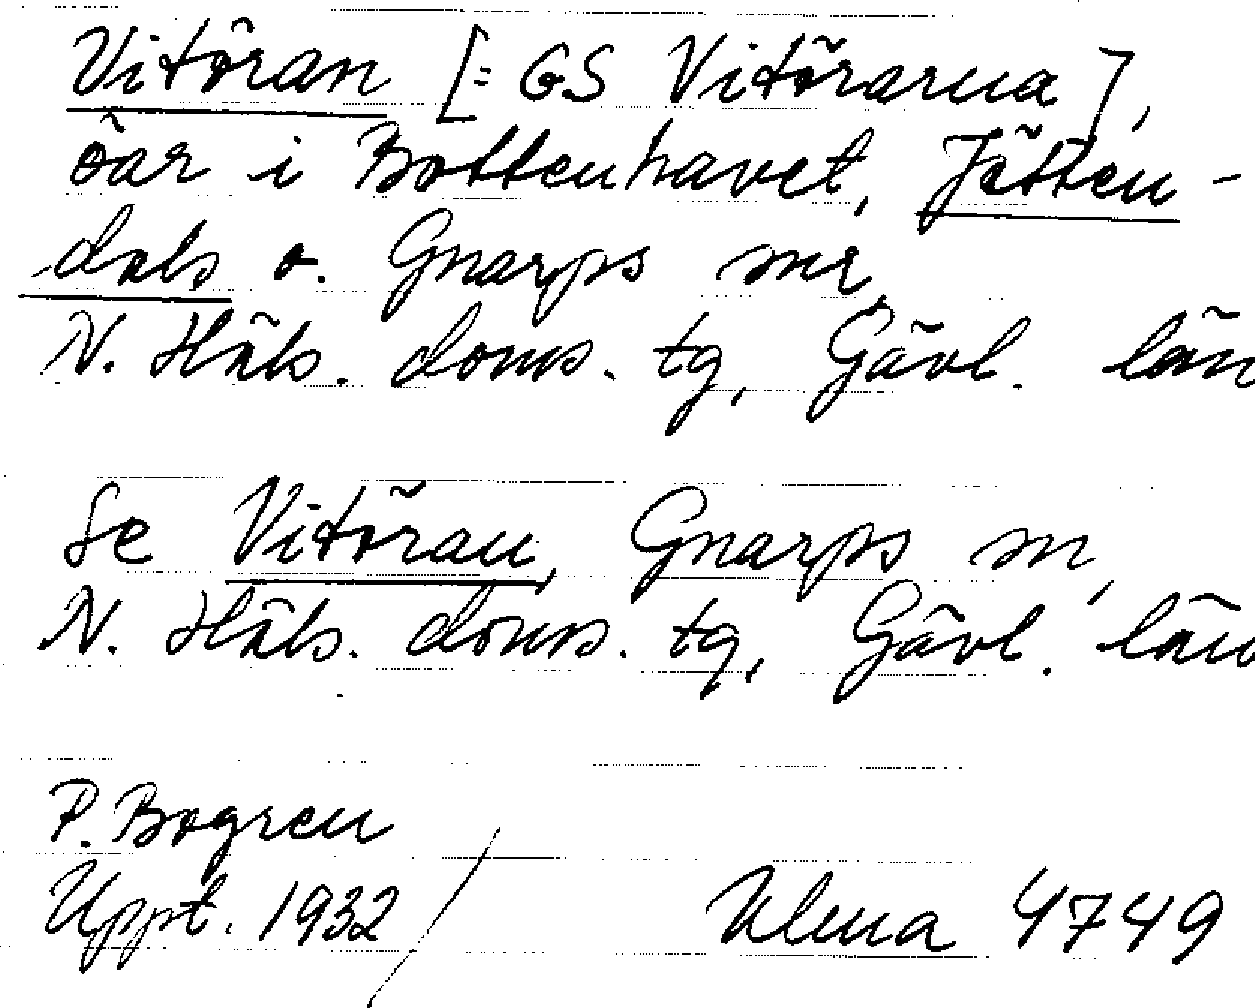 Vitöran [= GS Vitörarna],
öar i Bottenhavet, Jätten-
dals o. Gnarps snr,
N. Häls. doms. tg, Gävl. län
Se Vitöran, Gnarps sn,
N. Häls. doms. tg, Gävl. län
P. Bogren
Uppt. 1932 / Ulma 4749